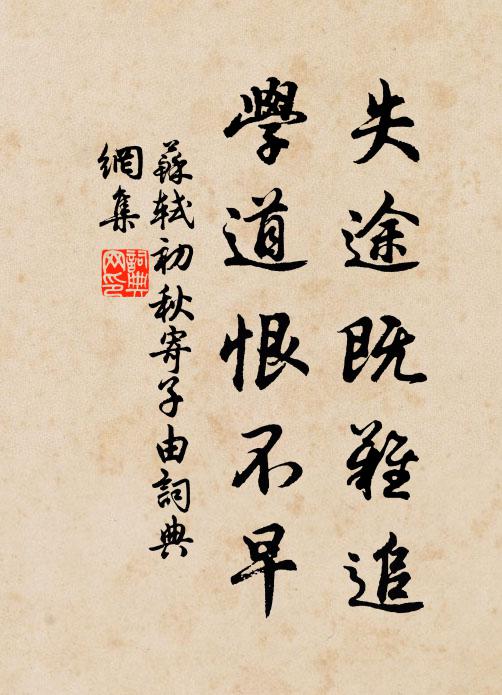 失途既難追
學道恨不早
蘇軾初秋寄子由詞典
網集
詞典
网印